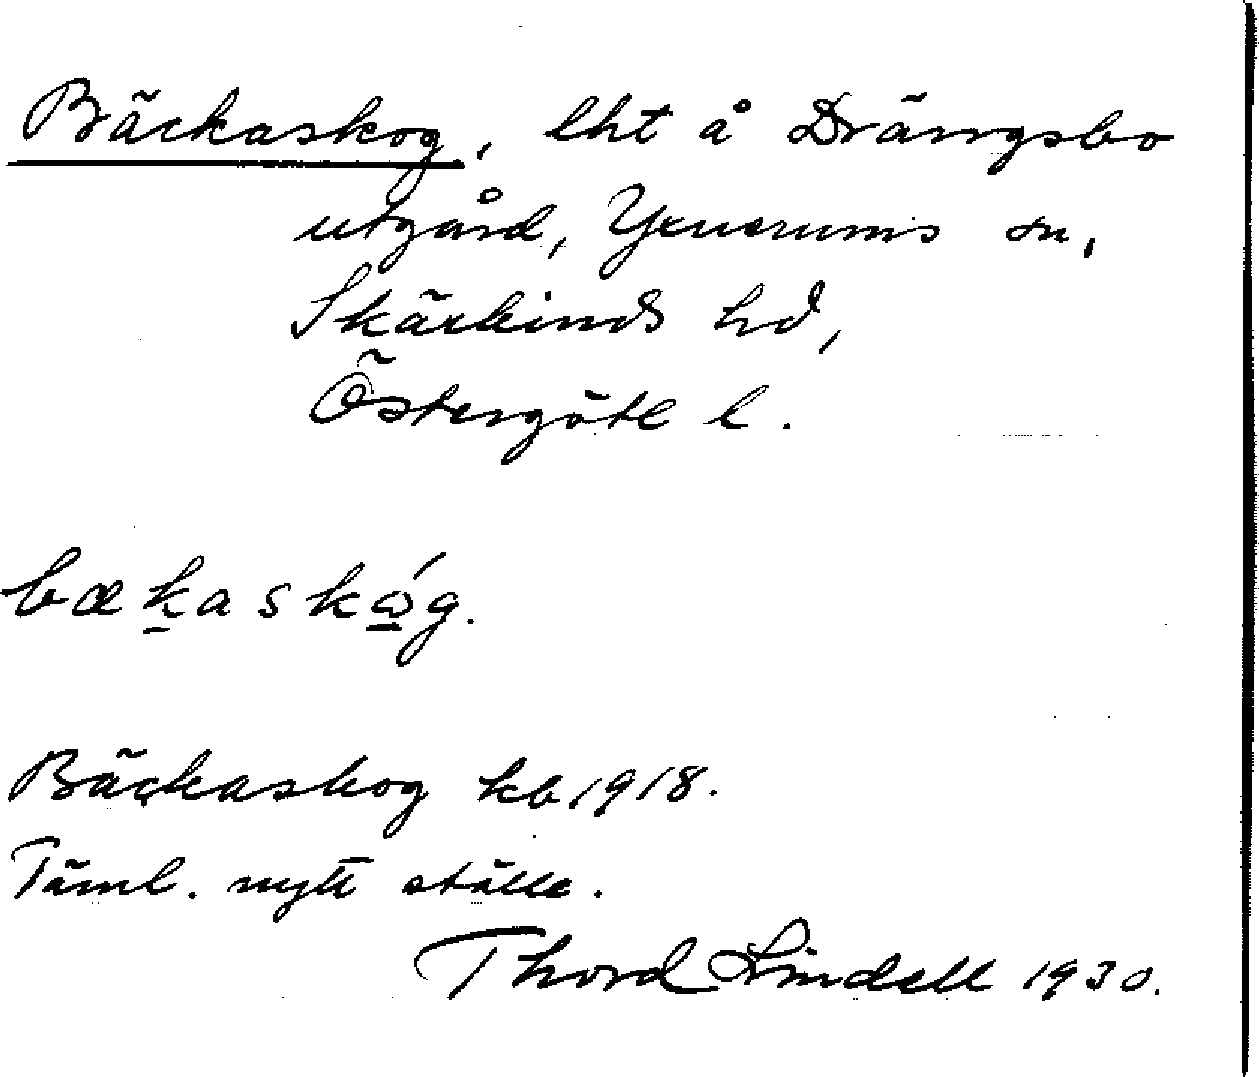 Bäckaskog, lht å Drängsbo
utgård, Yxnerums sn,
Skärkinds hd,
Östergötl l.
bæḵaskώ̲g.
Bäckaskog kb 1918.
Täml. nytt ställe.
Thord Lindell 1930.